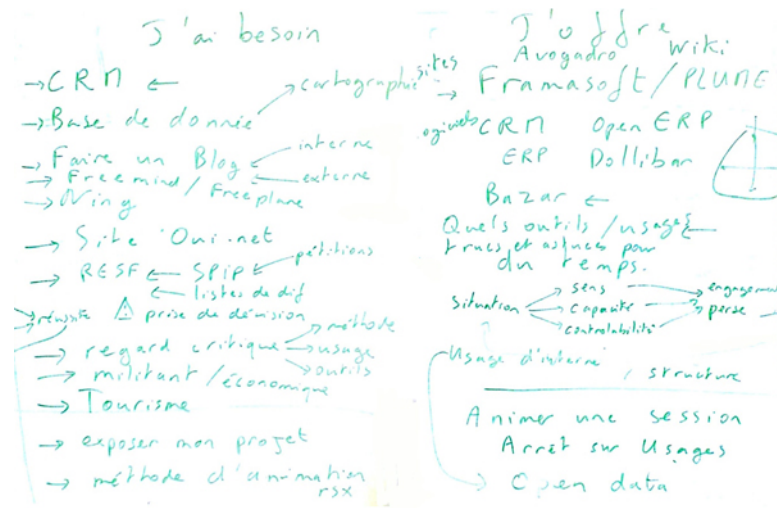 J'ai besoin
→ CRM ←
→ Base de donnée → cartographie
→ Faire un Blog ← interne
← externe
→ Freemind / Freeplane
→ Ning
→ Site Oui.net
→ RESF ← SPIP ← pétitions
← listes de dif
→ réussite ⚠ prise de démission
→ regard critique → méthode
→ usage
→ outils
→ militant / économique
→ Tourisme
→ exposer mon projet
→ méthode d'animation
rsx
J'offre
Avogadro Wiki
sites
→ Framasoft / PLUME
logiciels CRM Open ERP
ERP Dollibar
Bazar ←
Quels outils / usages ←
trucs et astuces pour
du temps.
situation → sens → engagement
→ capacité → perse
→ controlabilité
Usage d'interne
/ structure
Animer une session
Arrêt sur Usages
→ Open data